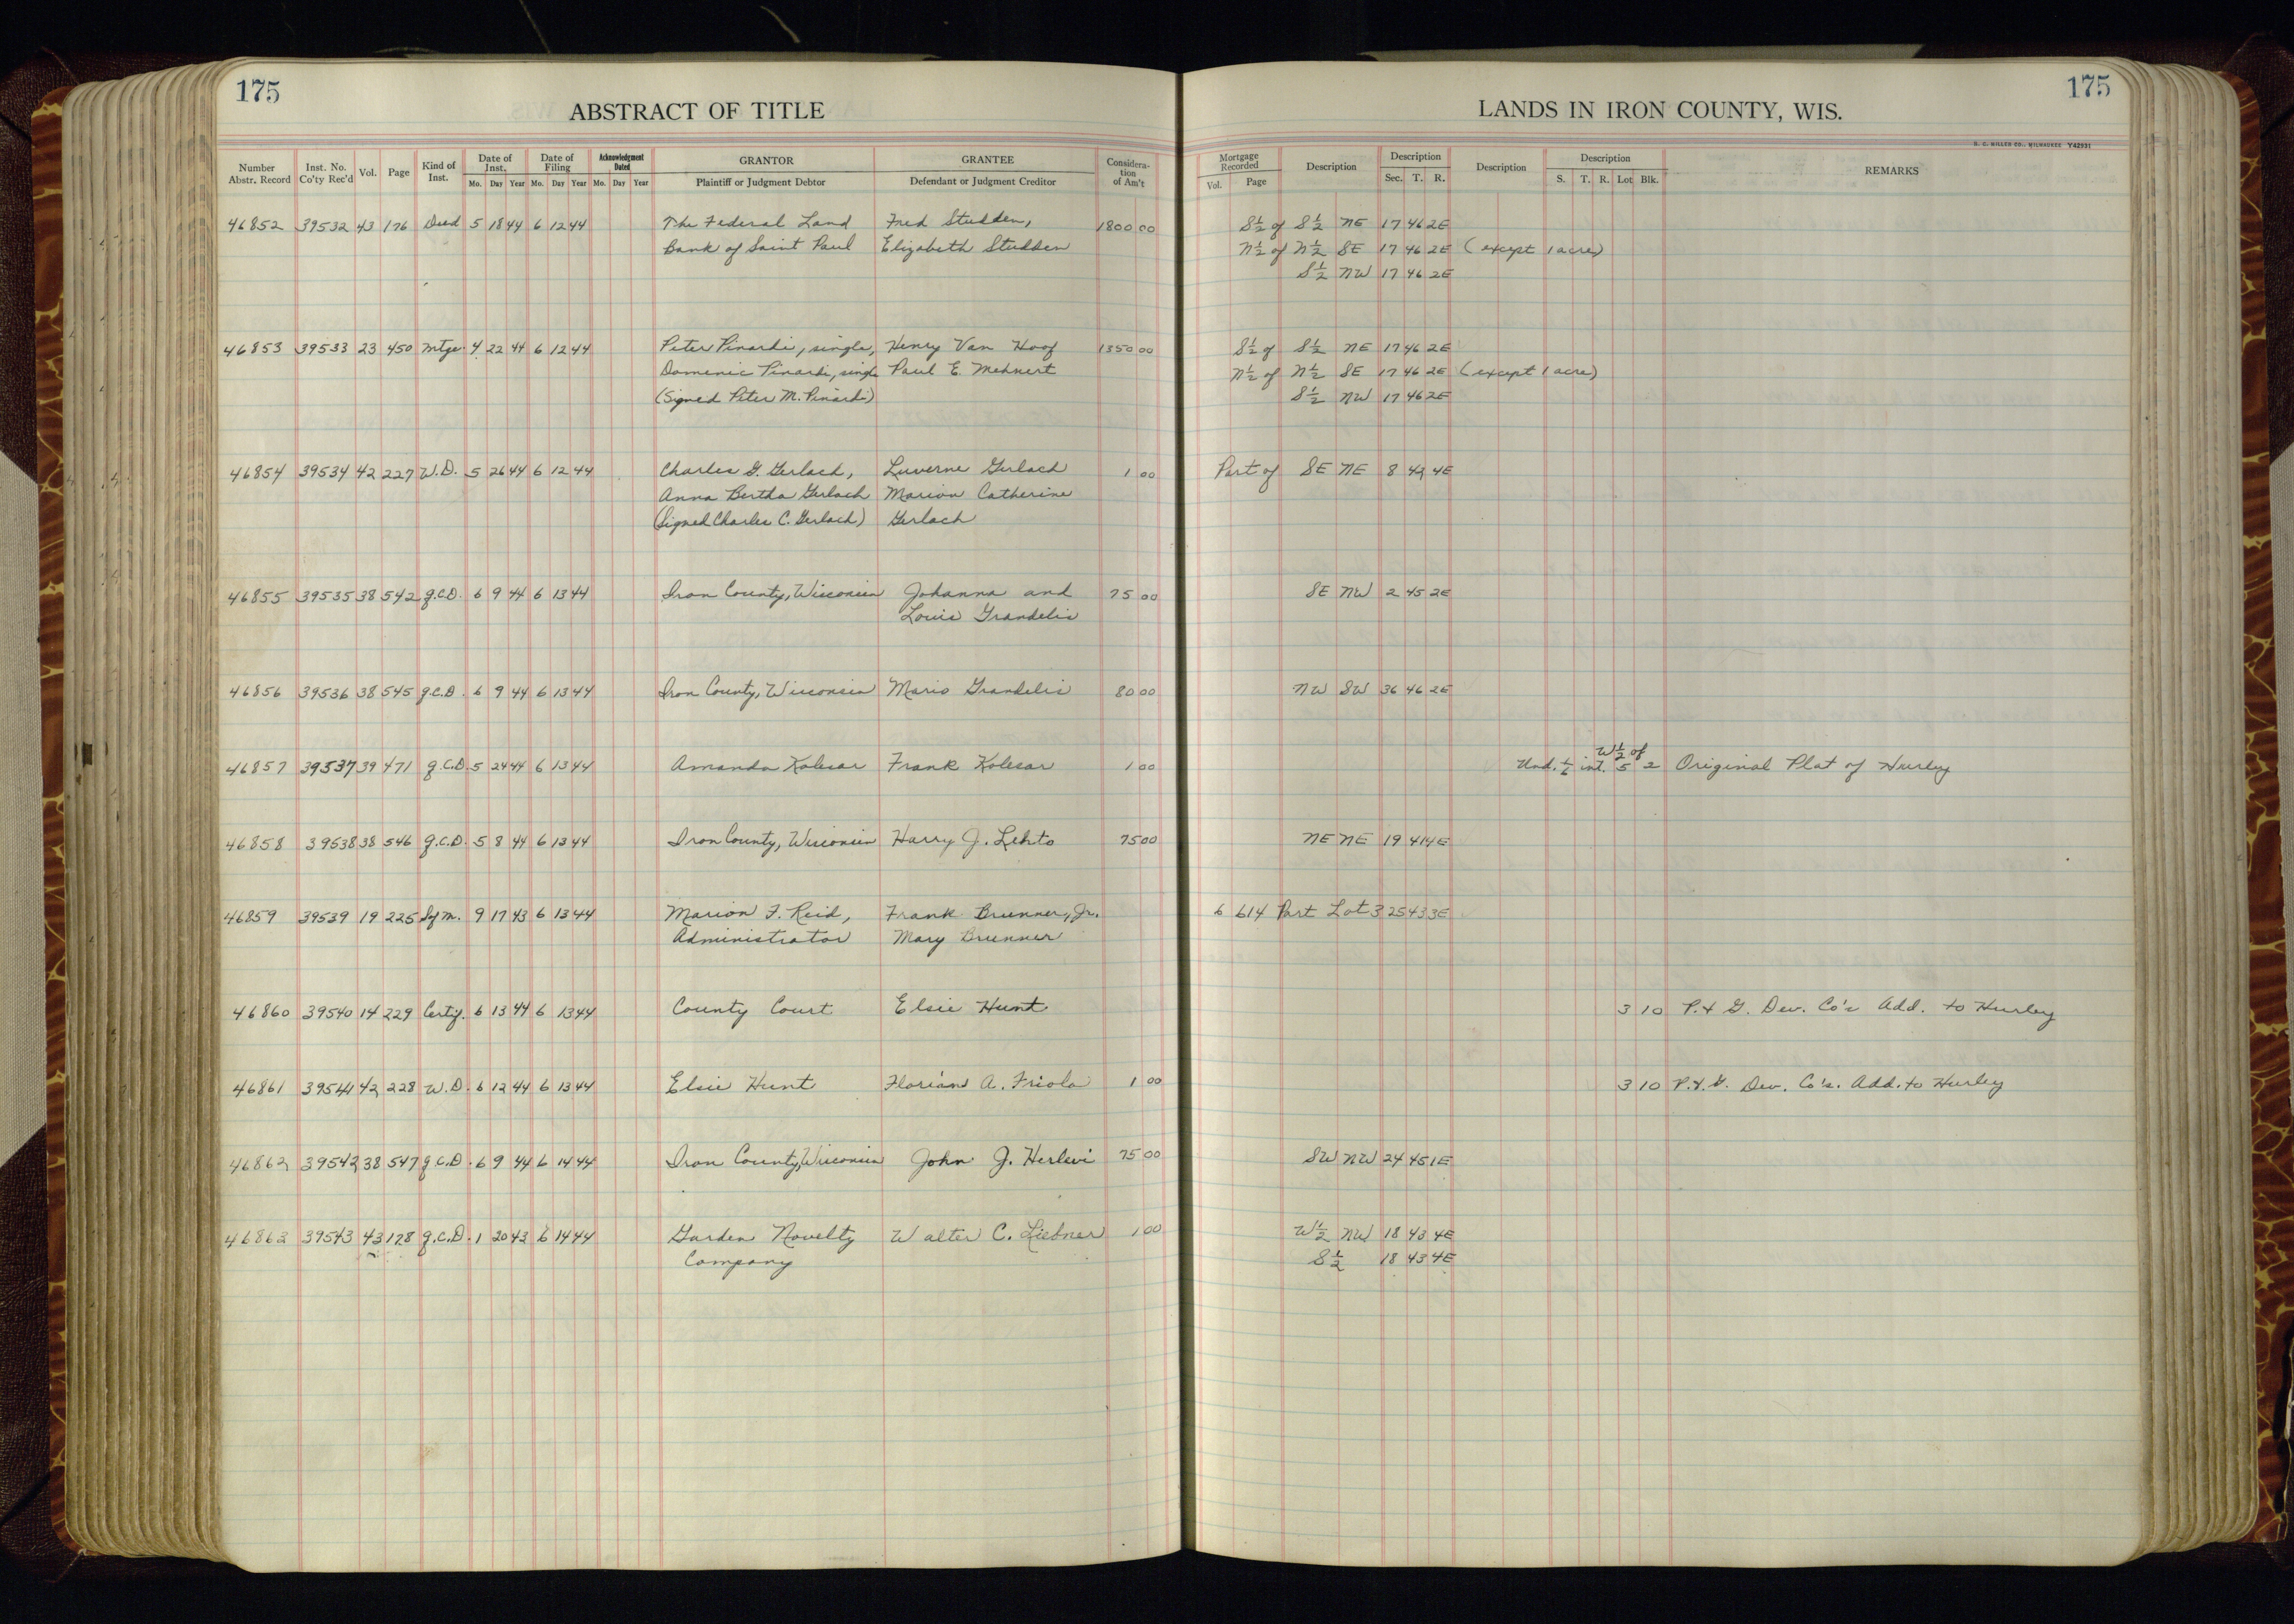 175
175
ABSTRACT OF TITLE
LANDS IN IRON COUNTY, WIS.
Number Abstr. Record Inst. No. Co'ty Rec'd Vol. Page Kind of Inst. Date of Inst. Mo. Day Year Date of Filing Mo. Day Year Acknowledgment Dated Mo. Day Year GRANTOR Plaintiff or Judgment Debtor GRANTEE Defendant or Judgment Creditor Considera-tion of Am't Mortgage Recorded Vol. Page Description Description Sec. T. R. Description Description S. T. R. Lot Blk. REMARKS
46852 39532 43 176 Deed 5 18 44 6 12 44 The Federal Land Fred Studden, 1800 00 S½ of S½ NE 17 46 2E
Bank of Saint Paul Elizabeth Studden N½ of N½ SE 17 46 2E (except 1 acre)
S½ NW 17 46 2E
46853 39533 23 450 Mtge. 4 22 44 6 12 44 Peter Pinardi, single, Henry Van Hoof 1350 00 S½ of S½ NE 17 46 2E
Domenic Pinardi, single Paul E. Mehnert N½ of N½ SE 17 46 2E (except 1 acre)
(Signed Peter M. Pinardi) S½ NW 17 46 2E
46854 39534 42 227 W.D. 5 26 44 6 12 44 Charles G. Gerlach, Luverne Gerlach 1 00 Part of SE NE 8 42 4E
Anna Bertha Gerlach Marion Catherine
(Signed Charles C. Gerlach) Gerlach
46855 39535 38 542 Q.C.D. 6 9 44 6 13 44 Iron County, Wisconsin Johanna and 75 00 SE NW 2 45 2E
Louis Grandelis
46856 39536 38 545 Q.C.D. 6 9 44 6 13 44 Iron County, Wisconsin Mario Grandelis 80 00 NW SW 36 46 2E
46857 39537 39 471 Q.C.D. 5 24 44 6 13 44 Amanda Kolesar Frank Kolesar 1 00 Und. 1/6 int. W½ of 5 2 Original Plat of Hurley
46858 39538 38 546 Q.C.D. 5 8 44 6 13 44 Iron County, Wisconsin Harry J. Lehto 75 00 NE NE 19 41 4E
46859 39539 19 225 Sf M. 9 17 43 6 13 44 Marion F. Reid, Frank Brunner, Jr. 6 614 Part Lot 3 25 43 3E
Administrator Mary Brunner
46860 39540 14 229 Certif. 6 13 44 6 13 44 County Court Elsie Hunt 3 10 P. & G. Dev. Co's Add. to Hurley
46861 39541 42 228 W.D. 6 12 44 6 13 44 Elsie Hunt Florian A. Friola 1 00 3 10 P. & G. Dev. Co's. Add. to Hurley
46862 39542 38 547 Q.C.D. 6 9 44 6 14 44 Iron County, Wisconsin John J. Herlevi 75 00 SW NW 24 45 1E
46863 39543 43 178 Q.C.D. 1 20 43 6 14 44 Garden Novelty Walter C. Liebner 1 00 W½ NW 18 43 4E
Company S½ 18 43 4E